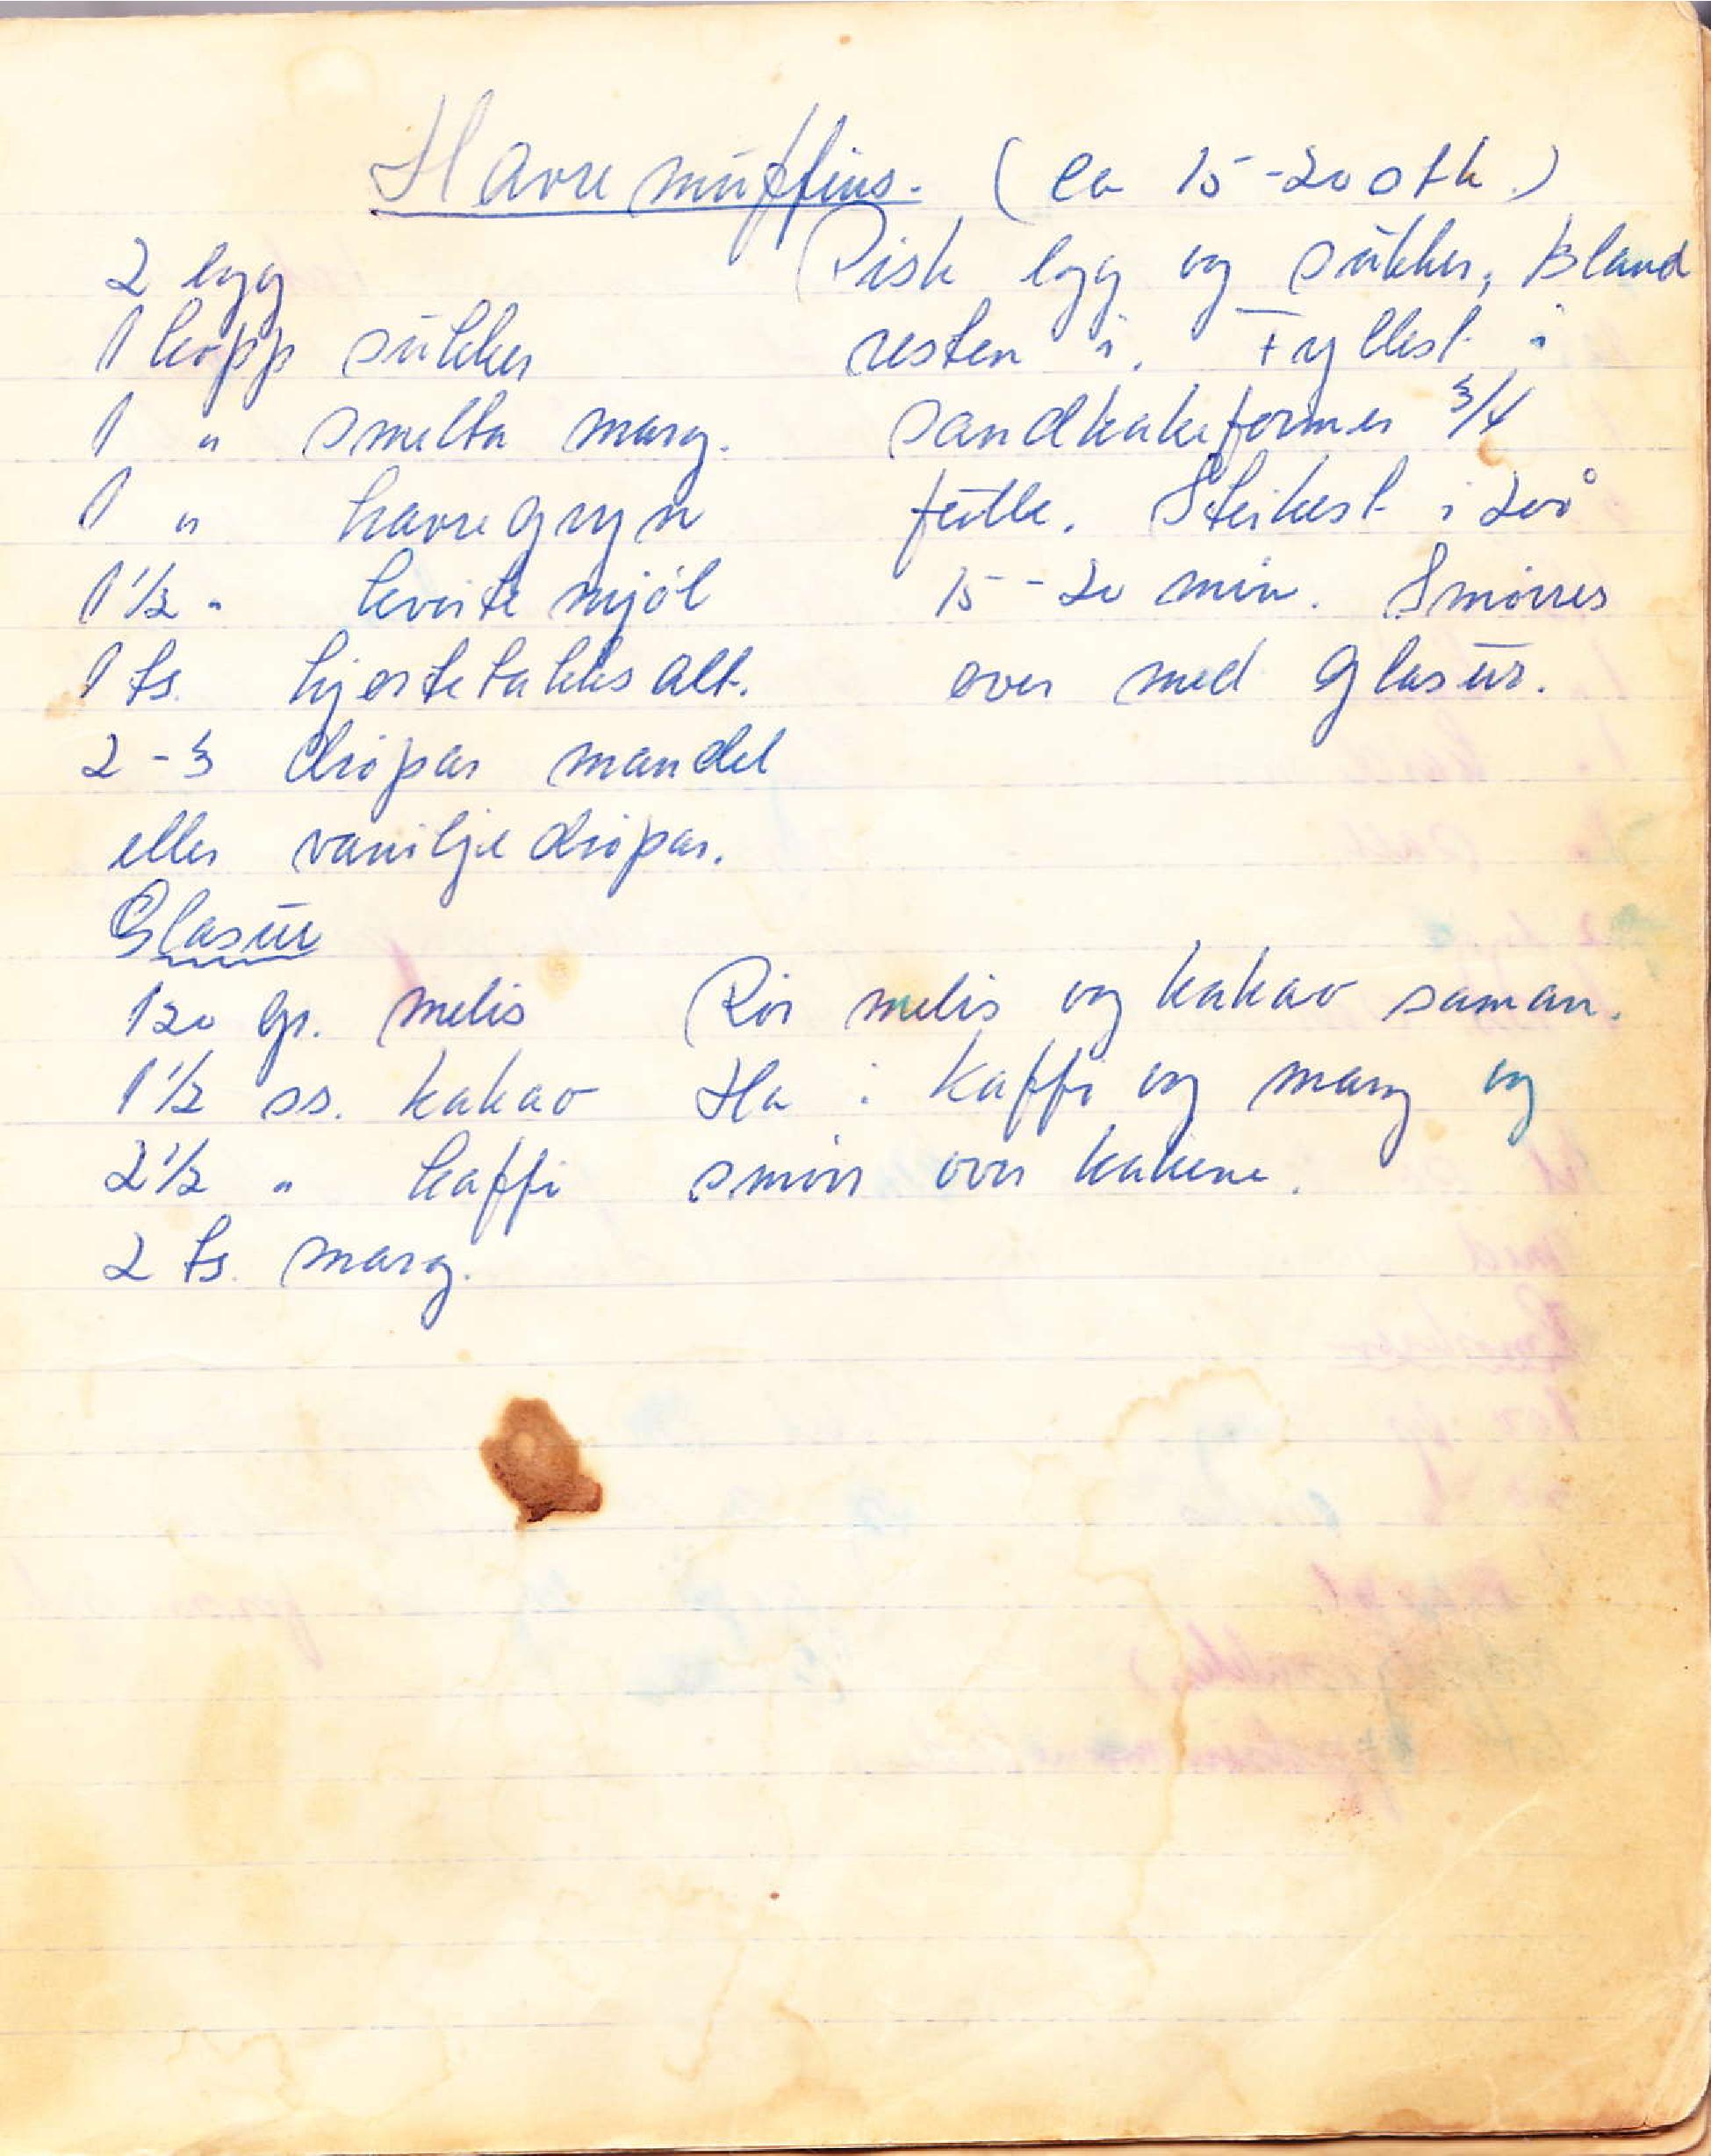 Havremuffins. (Ca 15-20 stk.)
2 egg
1 kopp sukker
1 " smelta marg.
1 " havregryn
1 1/2 " kveitemjöl
1 ts. hjortetakksalt.
2-3 dropar mandel
eller vaniljedropar.
Pisk egg og sukker, Bland
resten i. Fyllest i
sandkakeformer 3/4
fulle. Steikest i 200°
15-20 min. Smöres
over med Glasur.
Glasur
120 gr. melis
1 1/2 ss. kakao
2 1/2 " kaffi
2 ts. marg.
Rör melis og kakao saman.
Ha i kaffi og marg og
smör over kakene.